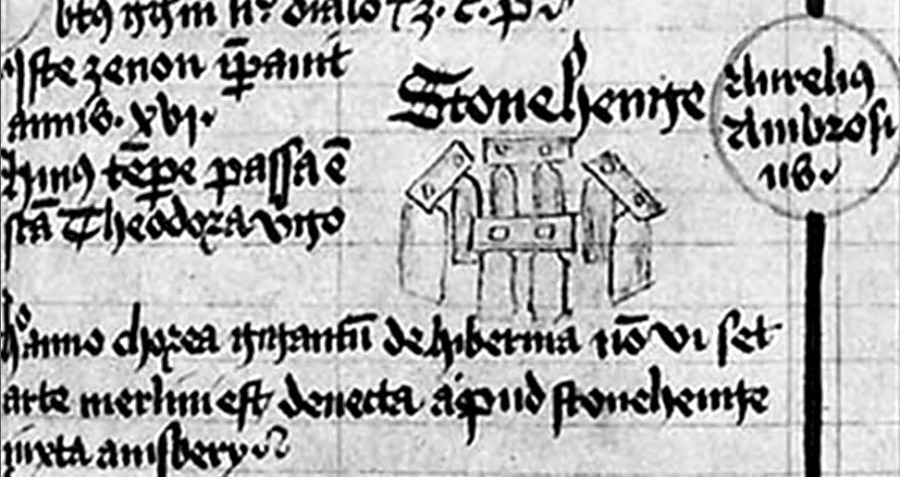 Iste zenon īpauit
annis. xvj.
Huius tēpe passa ē
sc̄a Theodora virgo
Stonehenge
Aurelius
Ambrosi
us.
hͦ anno chorea gigantū de hibernia nō vi set
arte merlini est deuecta apud stonehenge
iuxta amsbery